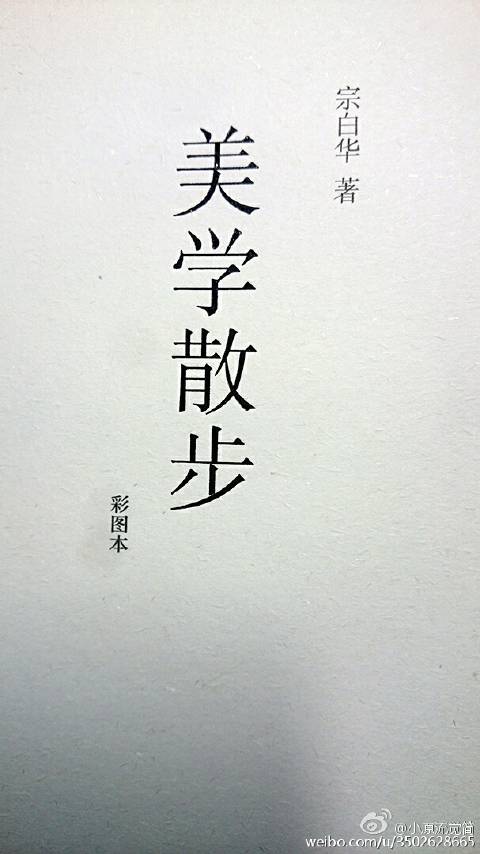 宗白华 著
美学散步
彩图本
@小源流觉简
weibo.com/u/3502628665